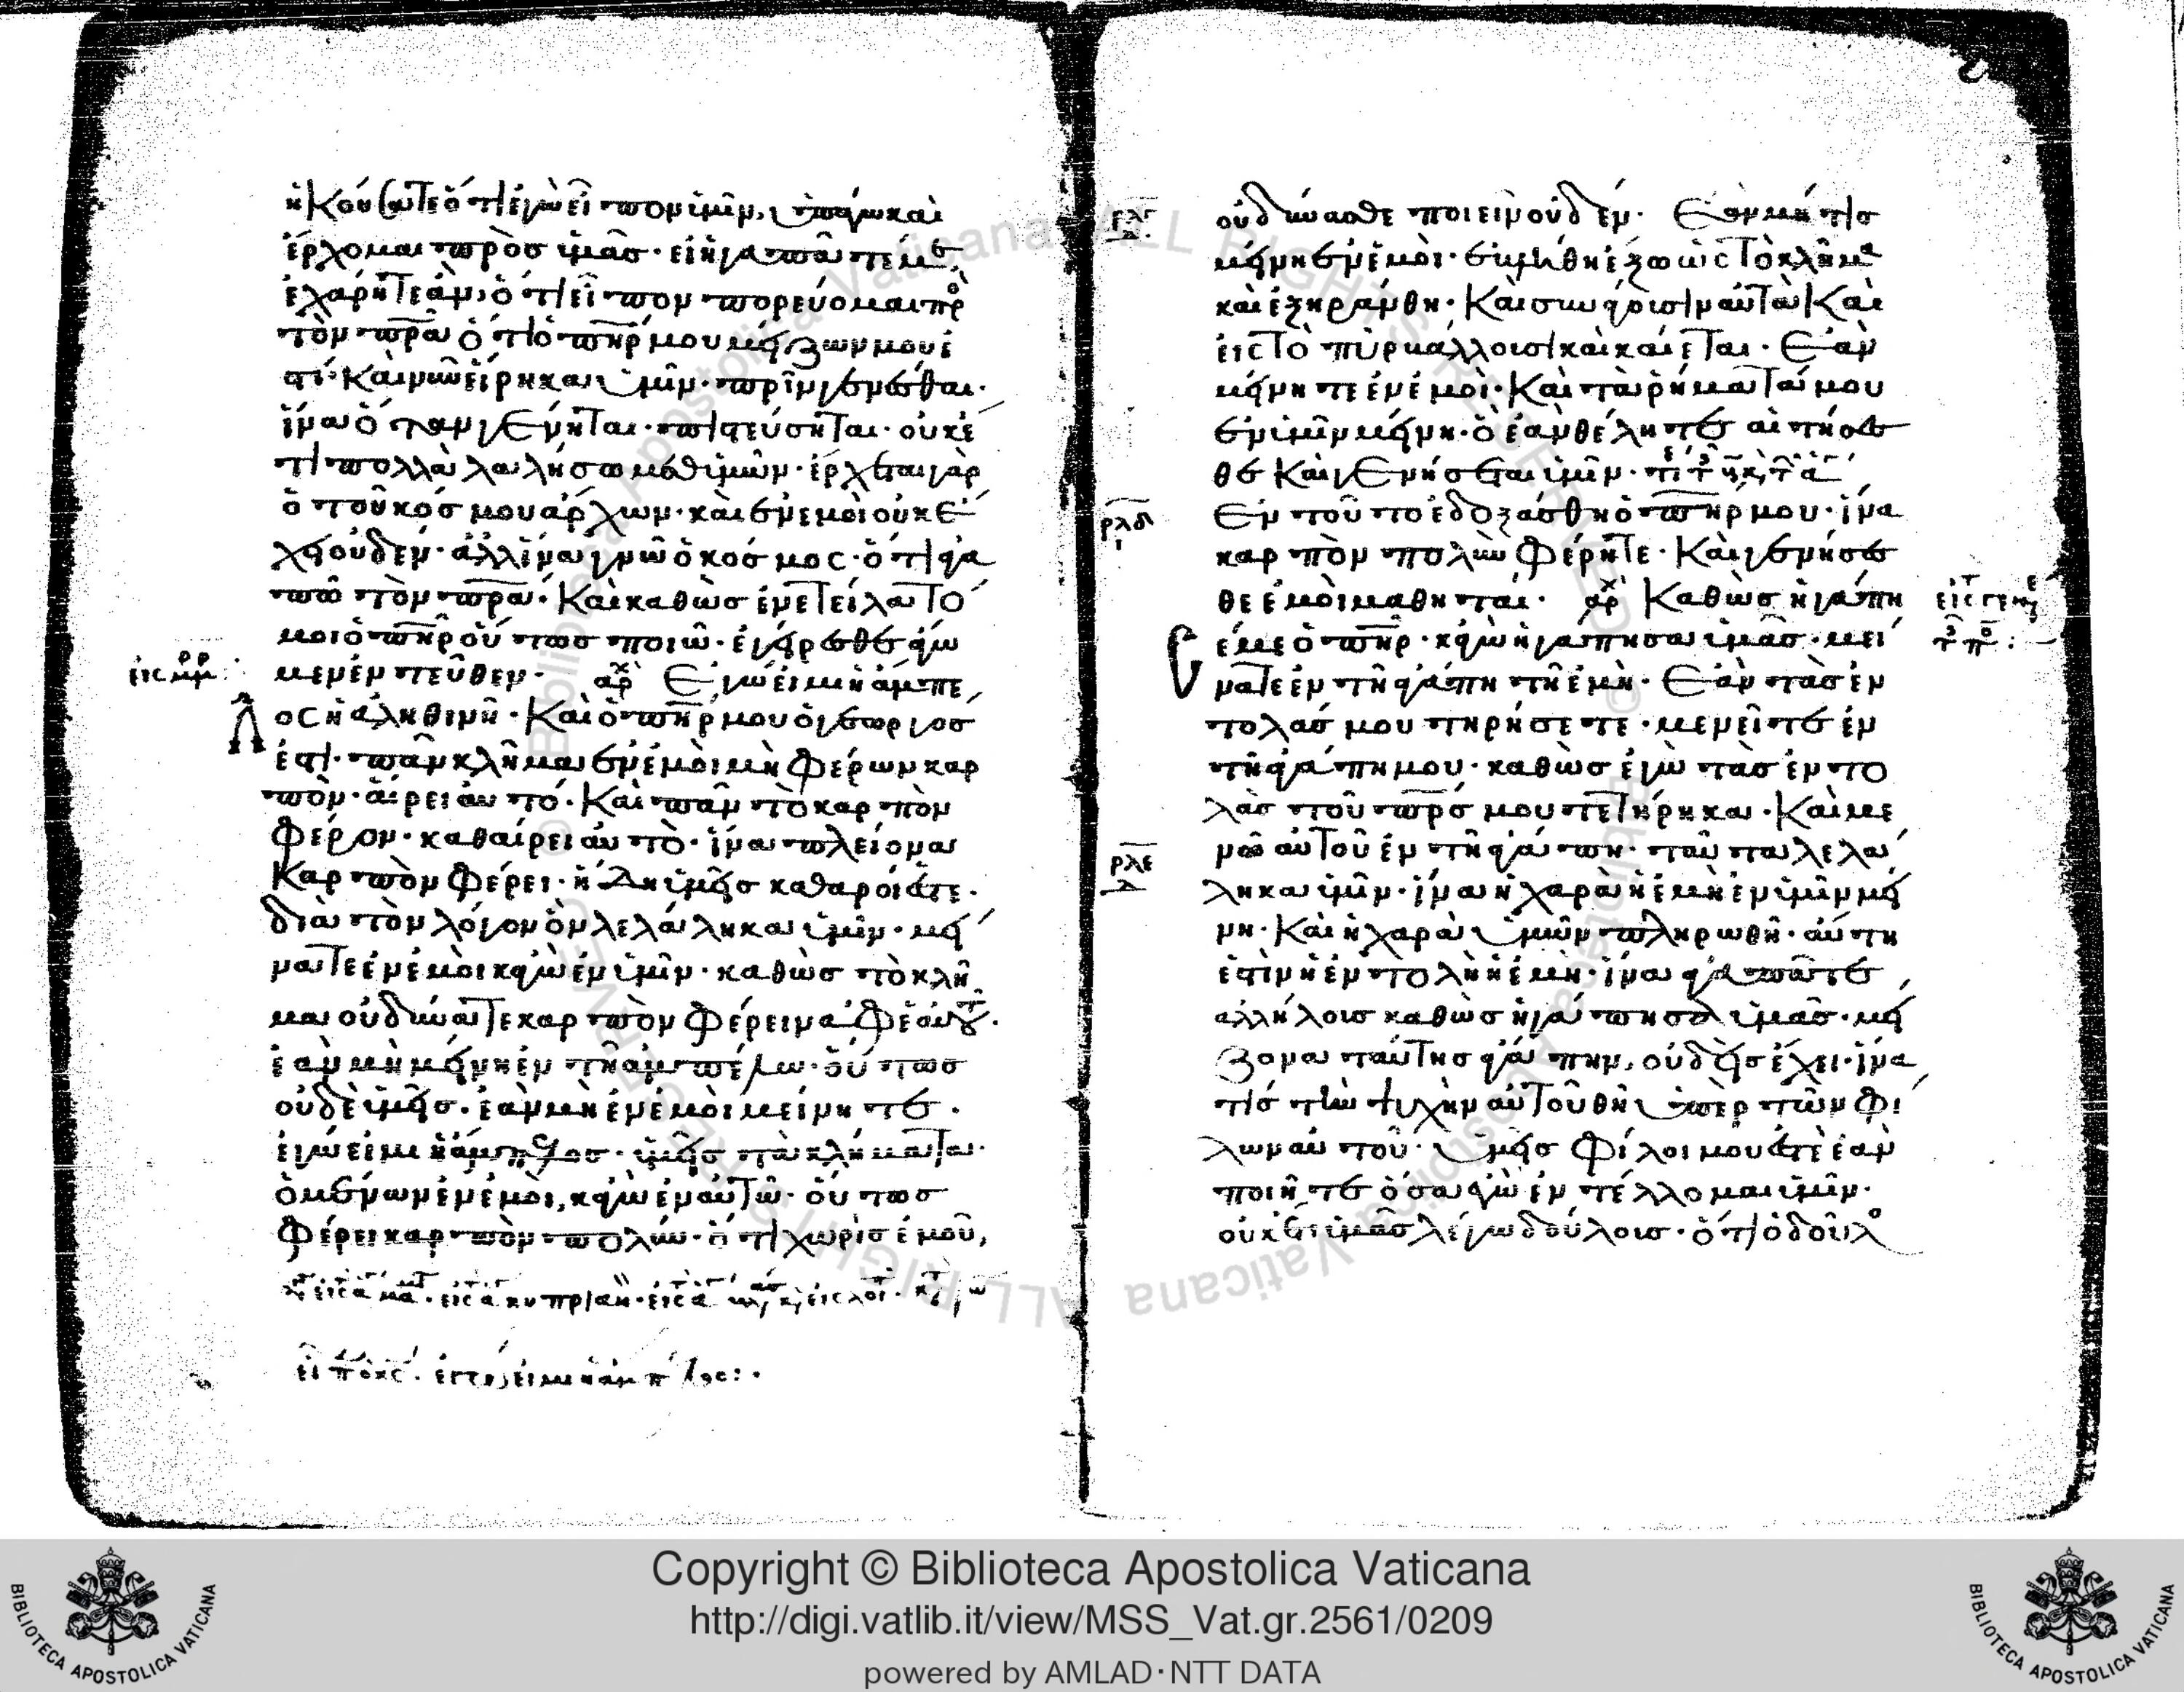 ἠκούσατε ὅτι ἐγὼ εἶπον ὑμῖν, ὑπάγω καὶ
ἔρχομαι πρὸς ὑμᾶς· εἰ ἠγαπᾶτέ με,
ἐχάρητε ἂν, ὅτι εἶπον πορεύομαι πρ
τὸν πρ̅α ὅτι ὁ πη̅ρ μου μείζων μου ἐ
στί· Καὶ νῦν εἴρηκα ὑμῖν· πρὶν γενέσθαι·
ἵνα ὅταν γένηται· πιστεύσηται· οὐκέ
τι πολλὰ λαλήσω μεθ ὑμῶν· ἔρχεται γὰρ
ὁ τοῦ κόσμου ἄρχων· καὶ ἐν ἐμοὶ οὐκ ἔ
χει οὐδέν· ἀλλ ἵνα γνῶ ὁ κόσμος· ὅτι ἀγα
πῶ τὸν πρ̅α· Καὶ καθὼς ἐνετείλατό
μοι ὁ πη̅ρ οὕτως ποιῶ· ἐγείρεσθε ἄγω
μεν ἐντεῦθεν· αρχ Ἐγώ εἰμι ἡ ἄμπε
λος ἡ ἀληθινὴ· Καὶ ὁ πη̅ρ μου ὁ γεωργός
ἐστι· πᾶν κλῆμα ἐν ἐμοὶ μὴ φέρων καρ
πὸν· αἴρει αὐτό· Καὶ πᾶν τὸ καρπὸν
φέρον· καθαίρει αὐτὸ· ἵνα πλείονα
Καρπὸν φέρει· ἤδη ὑμεῖς καθαροί ἐστε·
διὰ τὸν λόγον ὃν λελάληκα ὑμῖν· μεί
νατε ἐν ἐμοὶ κἀγὼ ἐν ὑμῖν· καθὼς τὸ κλῆ
μα οὐ δύναται καρπὸν φέρειν ἀφ ἑαυτοῦ·
ἐὰν μὴ μείνη ἐν τῆ ἀμπέλω· οὕτως
οὐδὲ ὑμεῖς· ἐὰν μὴ ἐν ἐμοὶ μείνητε·
ἐγώ εἰμι ἡ ἄμπελος· ὑμεῖς τὰ κλήματα·
ὁ μένων ἐν ἐμοὶ, κἀγὼ ἐν αὐτῶ· οὕτως
φέρει καρπὸν πολύν· ὅτι χωρὶς ἐμοῦ,
ἐγώ εἰμι ἡ ἄμπελος:·
ρλγ
οὐ δύνασθε ποιεῖν οὐδέν· Ἐὰν μή τις
μείνη ἐν ἐμοὶ· ἐβλήθη ἔξω ὡς τὸ κλῆμα
καὶ ἐξηράνθη· Καὶ συνάγουσιν αὐτὰ Καὶ
εἰς τὸ πῦρ βάλλουσι καὶ καίεται· Ἐὰν
μείνητε ἐν ἐμοὶ· Καὶ τὰ ῥήματά μου
ἐν ὑμῖν μείνη· ὃ ἐὰν θέλητε αἰτήσε
σθε Καὶ γενήσεται ὑμῖν·
ρλδ
Ἐν τούτο ἐδοξάσθη ὁ πη̅ρ μου· ἵνα
καρπὸν πολὺν φέρητε· Καὶ γενήσε
σθε ἐμοὶ μαθηταί· αρχ Καθὼς ἠγάπη
σέ με ὁ πη̅ρ· κἀγὼ ἠγάπησα ὑμᾶς· μεί
νατε ἐν τῆ ἀγάπη τῆ ἐμῆ· Ἐὰν τὰς ἐν
τολάς μου τηρήσετε· μενεῖτε ἐν
τῆ ἀγάπη μου· καθὼς ἐγὼ τὰς ἐντο
λὰς τοῦ πρ̅ς μου τετήρηκα· Καὶ μέ
νω αὐτοῦ ἐν τῆ ἀγάπη· ταῦτα λελά
ρλε
ληκα ὑμῖν· ἵνα ἡ χαρὰ ἡ ἐμὴ ἐν ὑμῖν μεί
νη· Καὶ ἡ χαρὰ ὑμῶν πληρωθῆ· αὕτη
ἐστὶν ἡ ἐντολὴ ἡ ἐμὴ· ἵνα ἀγαπᾶτε
ἀλλήλους καθὼς ἠγάπησα ὑμᾶς· μεί
ζονα ταύτης ἀγάπην, οὐδεὶς ἔχει· ἵνα
τίς τὴν ψυχὴν αὐτοῦ θῆ ὑπὲρ τῶν φί
λων αὐτοῦ· Ὑμεῖς φίλοι μου ἐστὲ ἐὰν
ποιῆτε ὅσα ἐγὼ ἐντέλλομαι ὑμῖν·
οὐκέτι ὑμᾶς λέγω δούλους· ὅτι ὁ δοῦλο
Copyright © Biblioteca Apostolica Vaticana
http://digi.vatlib.it/view/MSS_Vat.gr.2561/0209
powered by AMLAD·NTT DATA
BIBLIOTECA APOSTOLICA VATICANA
BIBLIOTECA APOSTOLICA VATICANA